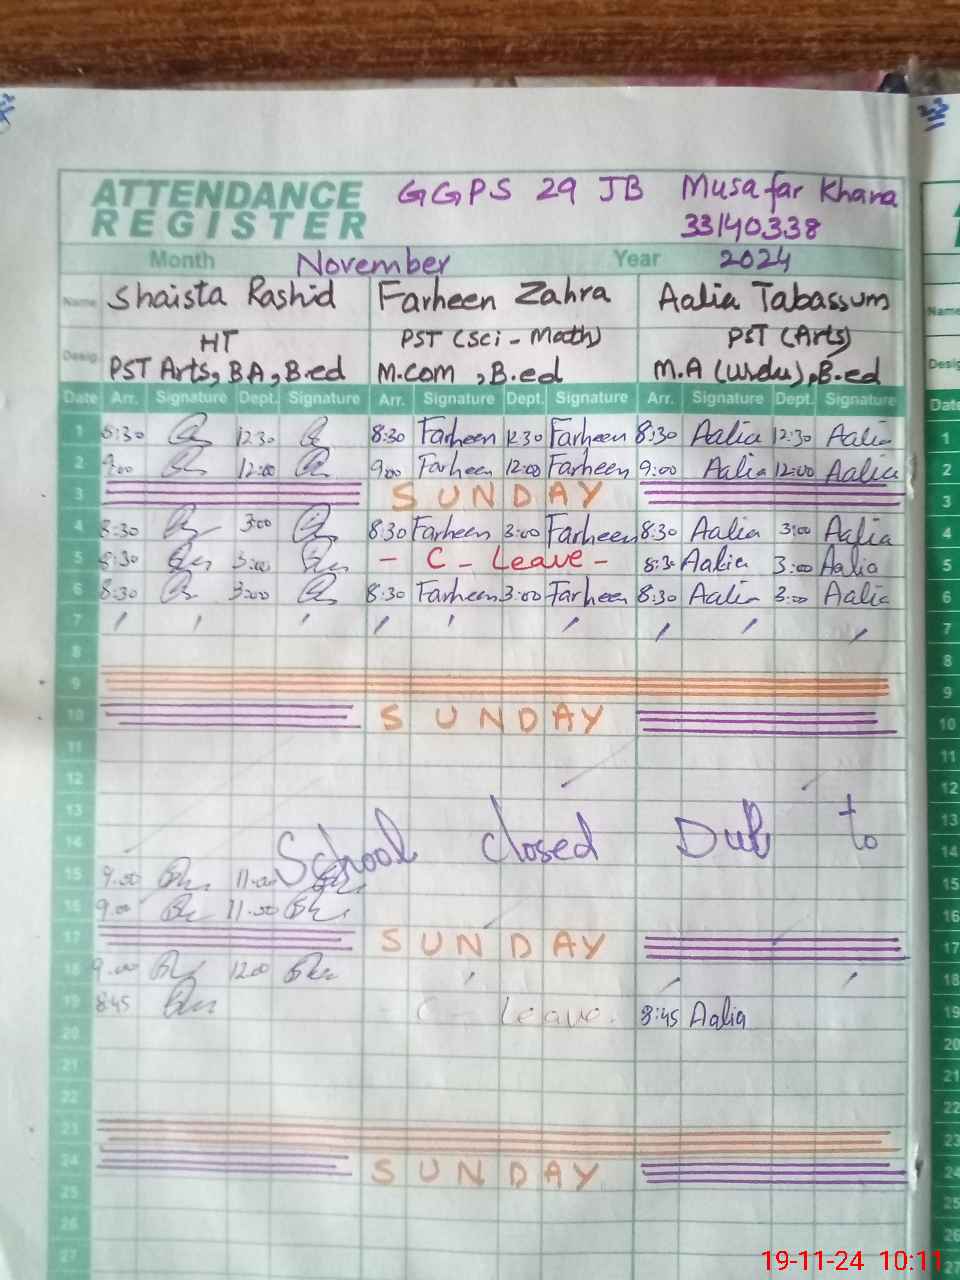 ATTENDANCE REGISTER GGPS 29 JB Musafar Khana
33140338
Month November Year 2024
Name Shaista Rashid Farheen Zahra Aalia Tabassum
Desig. HT PST (Sci - Math) PST (Arts)
PST Arts, BA, B.ed M.com, B.ed M.A (Urdu), B.ed
Date Arr. Signature Dept. Signature Arr. Signature Dept. Signature Arr. Signature Dept. Signature Date
1 8:30 12:30 8:30 Farheen 12:30 Farheen 8:30 Aalia 12:30 Aalia 1
2 9:00 12:00 9:00 Farheen 12:00 Farheen 9:00 Aalia 12:00 Aalia 2
3 SUNDAY 3
4 8:30 3:00 8:30 Farheen 3:00 Farheen 8:30 Aalia 3:00 Aalia 4
5 8:30 3:00 - C - Leave - 8:30 Aalia 3:00 Aalia 5
6 8:30 3:00 8:30 Farheen 3:00 Farheen 8:30 Aalia 3:00 Aalia 6
7 7
8 8
9 9
10 SUNDAY 10
11 11
12 12
13 13
14 School closed Due to 14
15 9:00 11:00 15
16 9:00 11:00 16
17 SUNDAY 17
18 9:00 12:00 18
19 8:45 C - Leave. 8:45 Aalia 19
20 20
21 21
22 22
23 23
24 SUNDAY 24
25 25
26 26
27 27
19-11-24 10:11